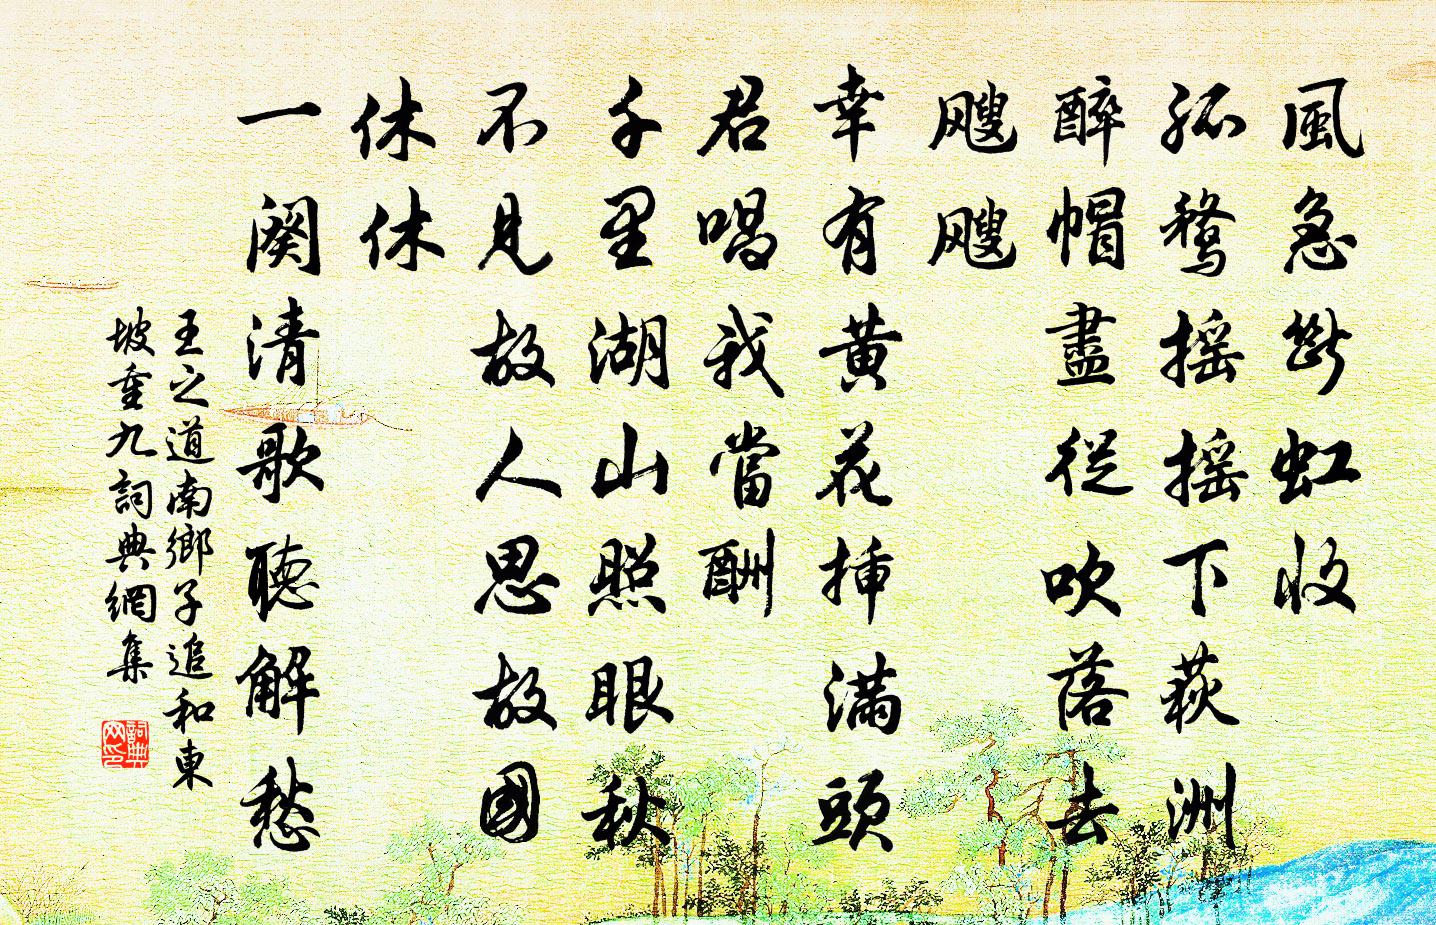 風急斷虹收
孤鶩搖搖下荻洲
醉帽盡從吹落去
颼颼
幸有黃花揷滿頭
君唱我當酬
千里湖山照眼秋
不見故人思故國
休休
一闋清歌聽解愁
王之道南鄉子追和東
坡重九詞典網集
詞典
网印